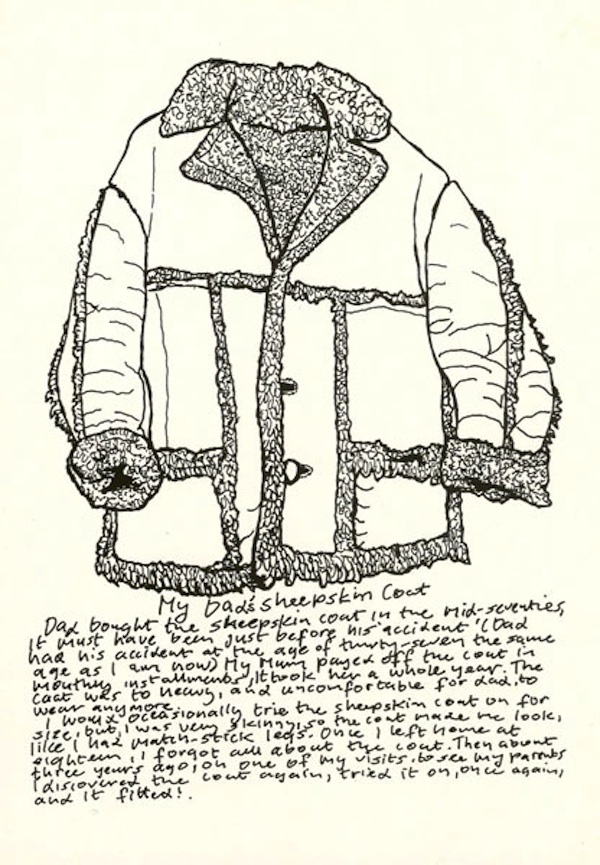 My Dad's sheepskin Coat
Dad bought the sheepskin coat in the mid-seventies,
it must have been just before his accident '(Dad
had his accident at the age of thirty-seven the same
age as I am now) My Mum payed off the coat in
monthly installments, It took her a whole year. The
coat was to heavy, and uncomfortable for dad, to
wear anymore.
I would occasionally trie the shepskin coat on for
size, but I was very skinny, so the coat made me look,
like I had match-stick legs. Once I left home at
eighteen, I forgot all about the coat. Then about
three years ago, on one of my visits to see my parents
I discovered the coat again, tried it on, once again,
and it fitted!.